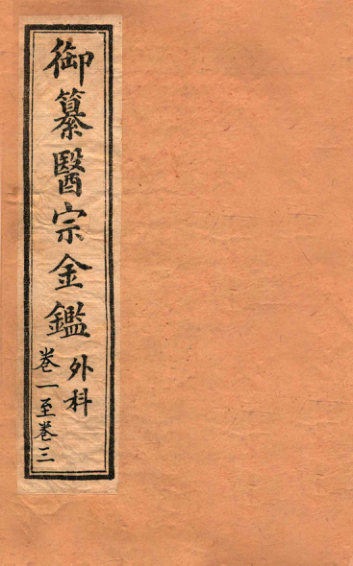 御纂醫宗金鑑
外科
卷一至卷三